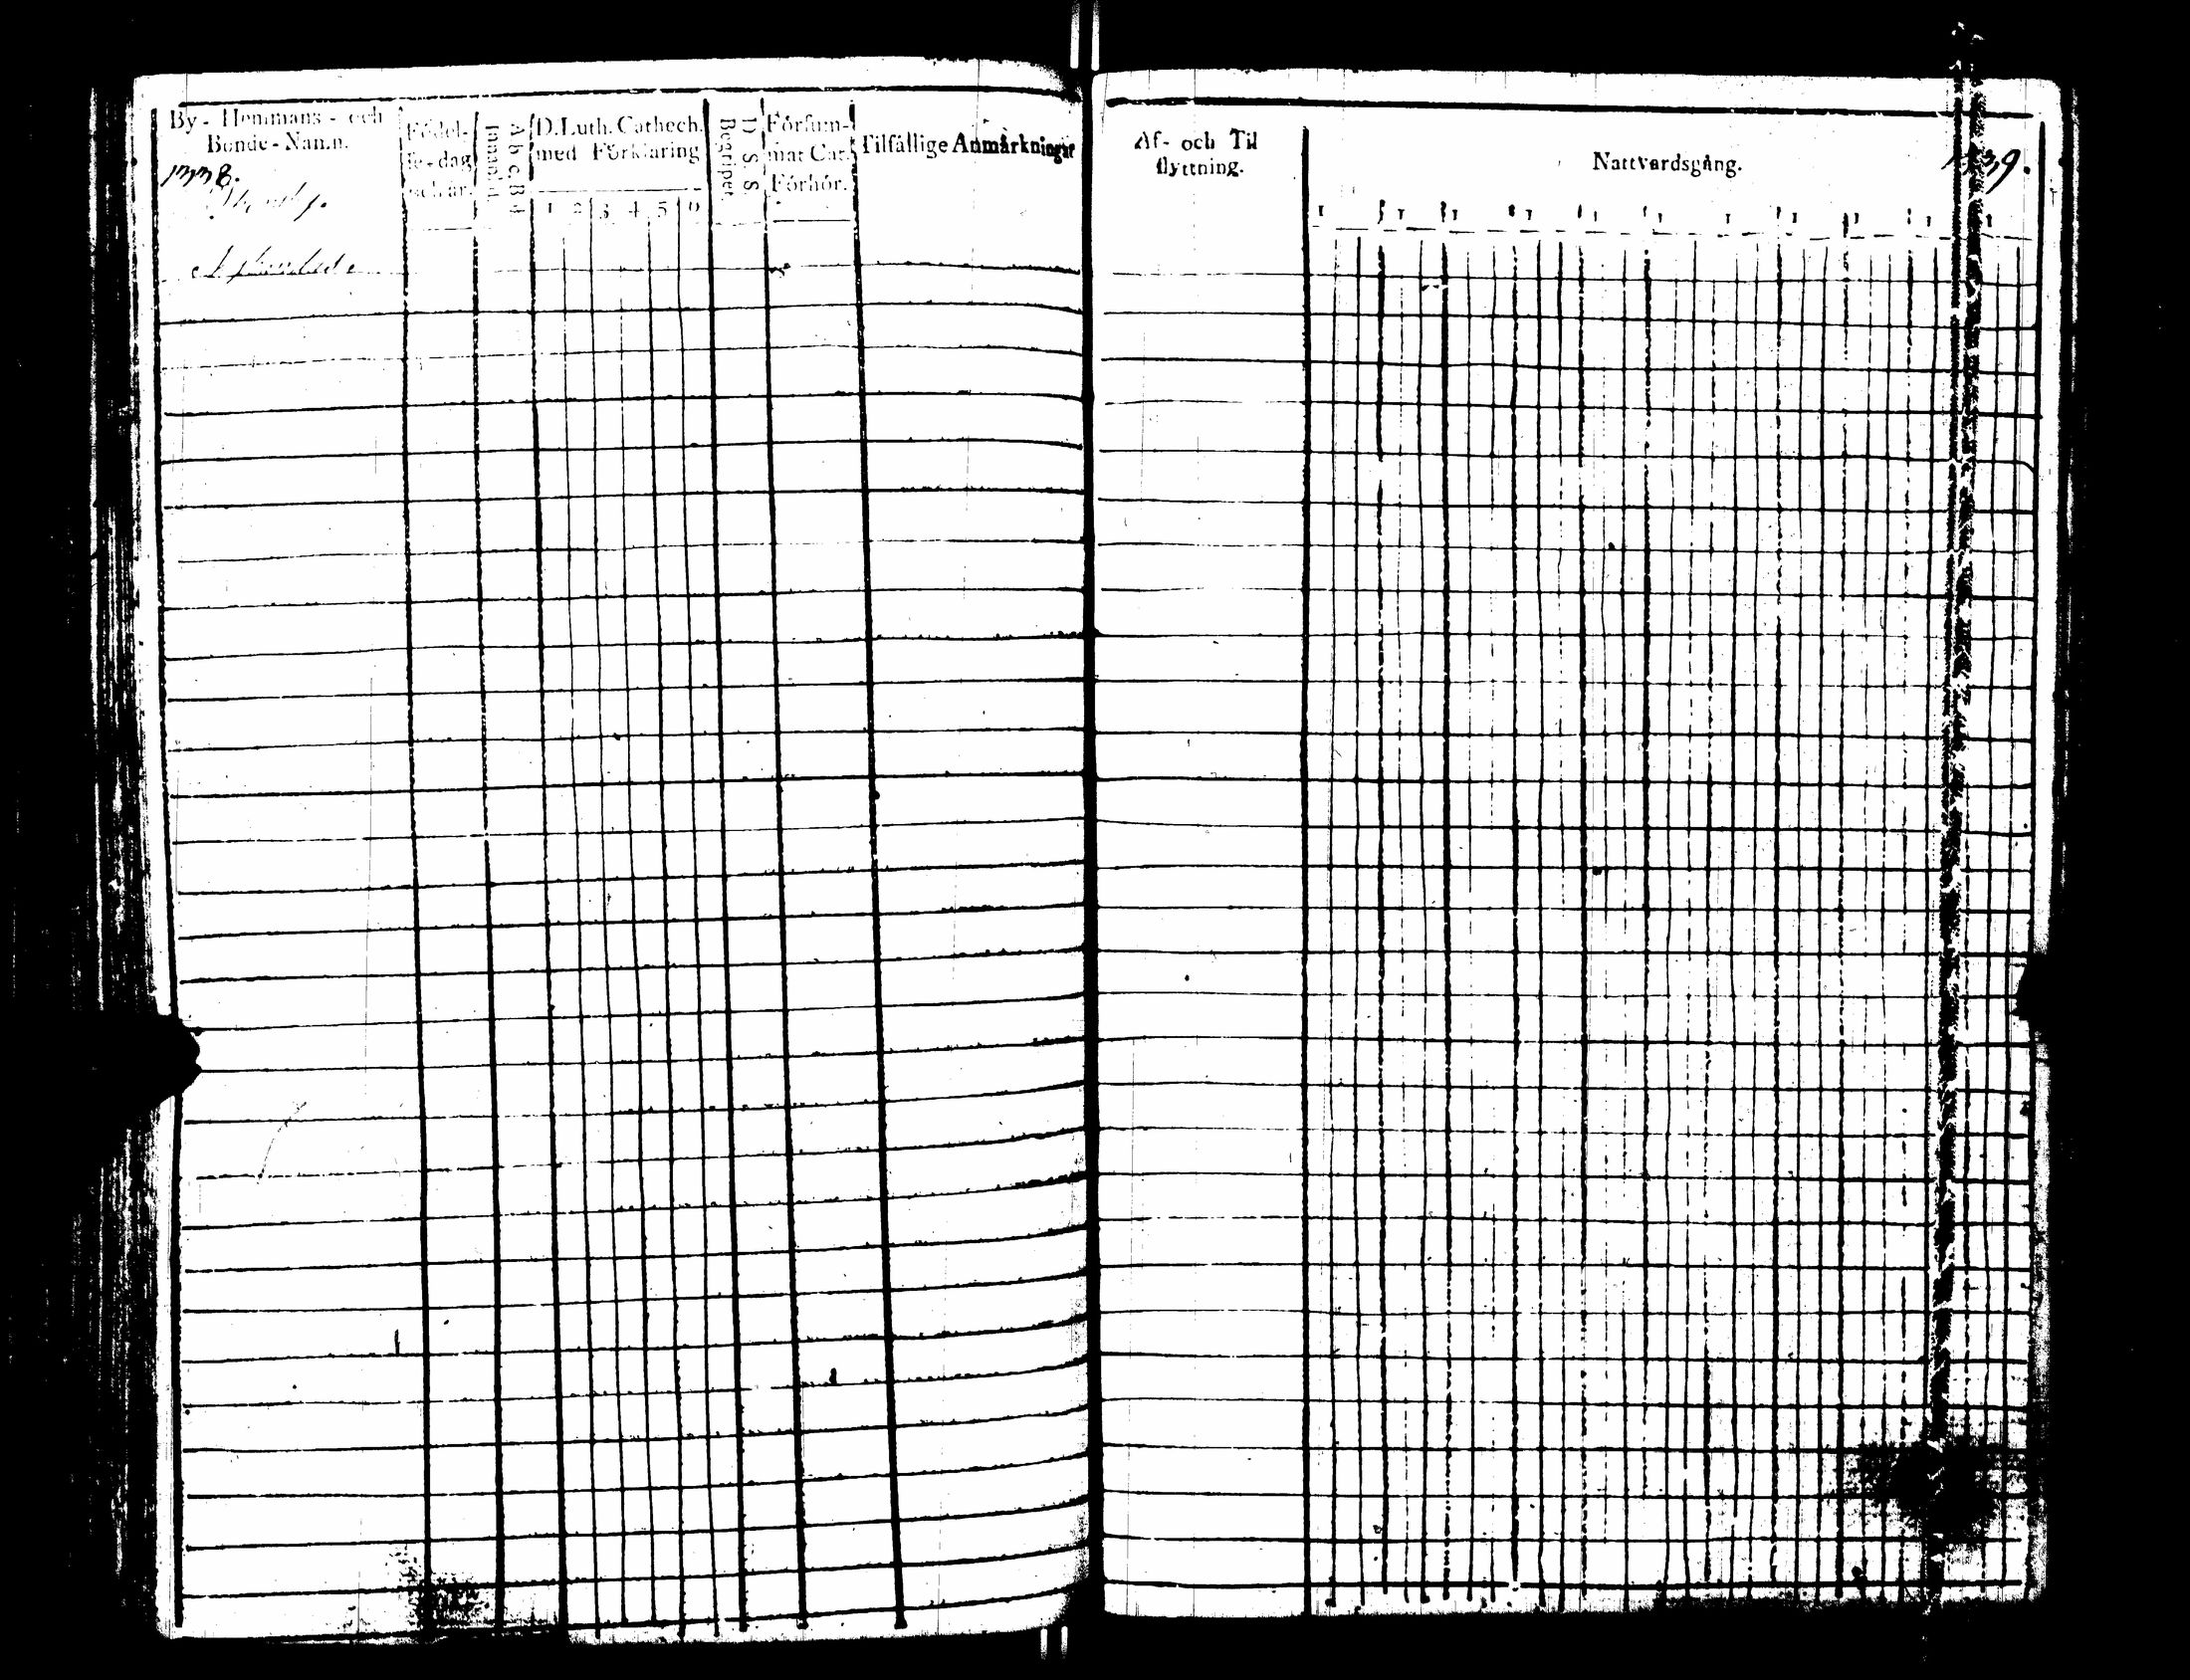 By- Hemmans- och
Bonde-Namn.
1338.
Födel-
se-dag
och år.
A b c Bok
innantil.
D. Luth. Cathech.
med Förklaring
1 2 3 4 5 6
D. S. S.
Begriper.
Försum-
mat Cat.
Förhör.
Tilfällige Anmärkningar
Af- och Til
flyttning.
Nattvardsgång.
1339.